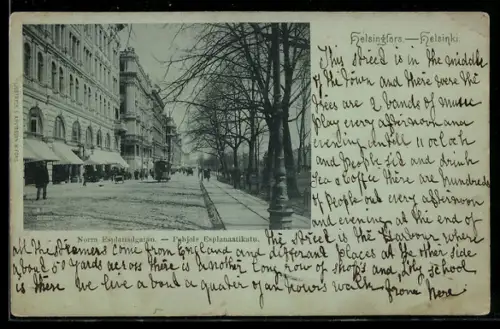 Helsingfors. — Helsinki.
This street is in the middle
of the town and there were the
trees are 2 bands of music
play every afternoon and
evening untill 11 oclock
and people sit and drink
Tea o Coffee there are hundreds
of People out every afternoon
and evening at the end of
Norra Esplanadgatan. — Pohjois Esplanaatikatu.
the street is the Harbour where
all the steamers come from England and different places at the other side
about 50 yards across there is another long row of shops and my school
is there we live about a quater of an hours walk from here